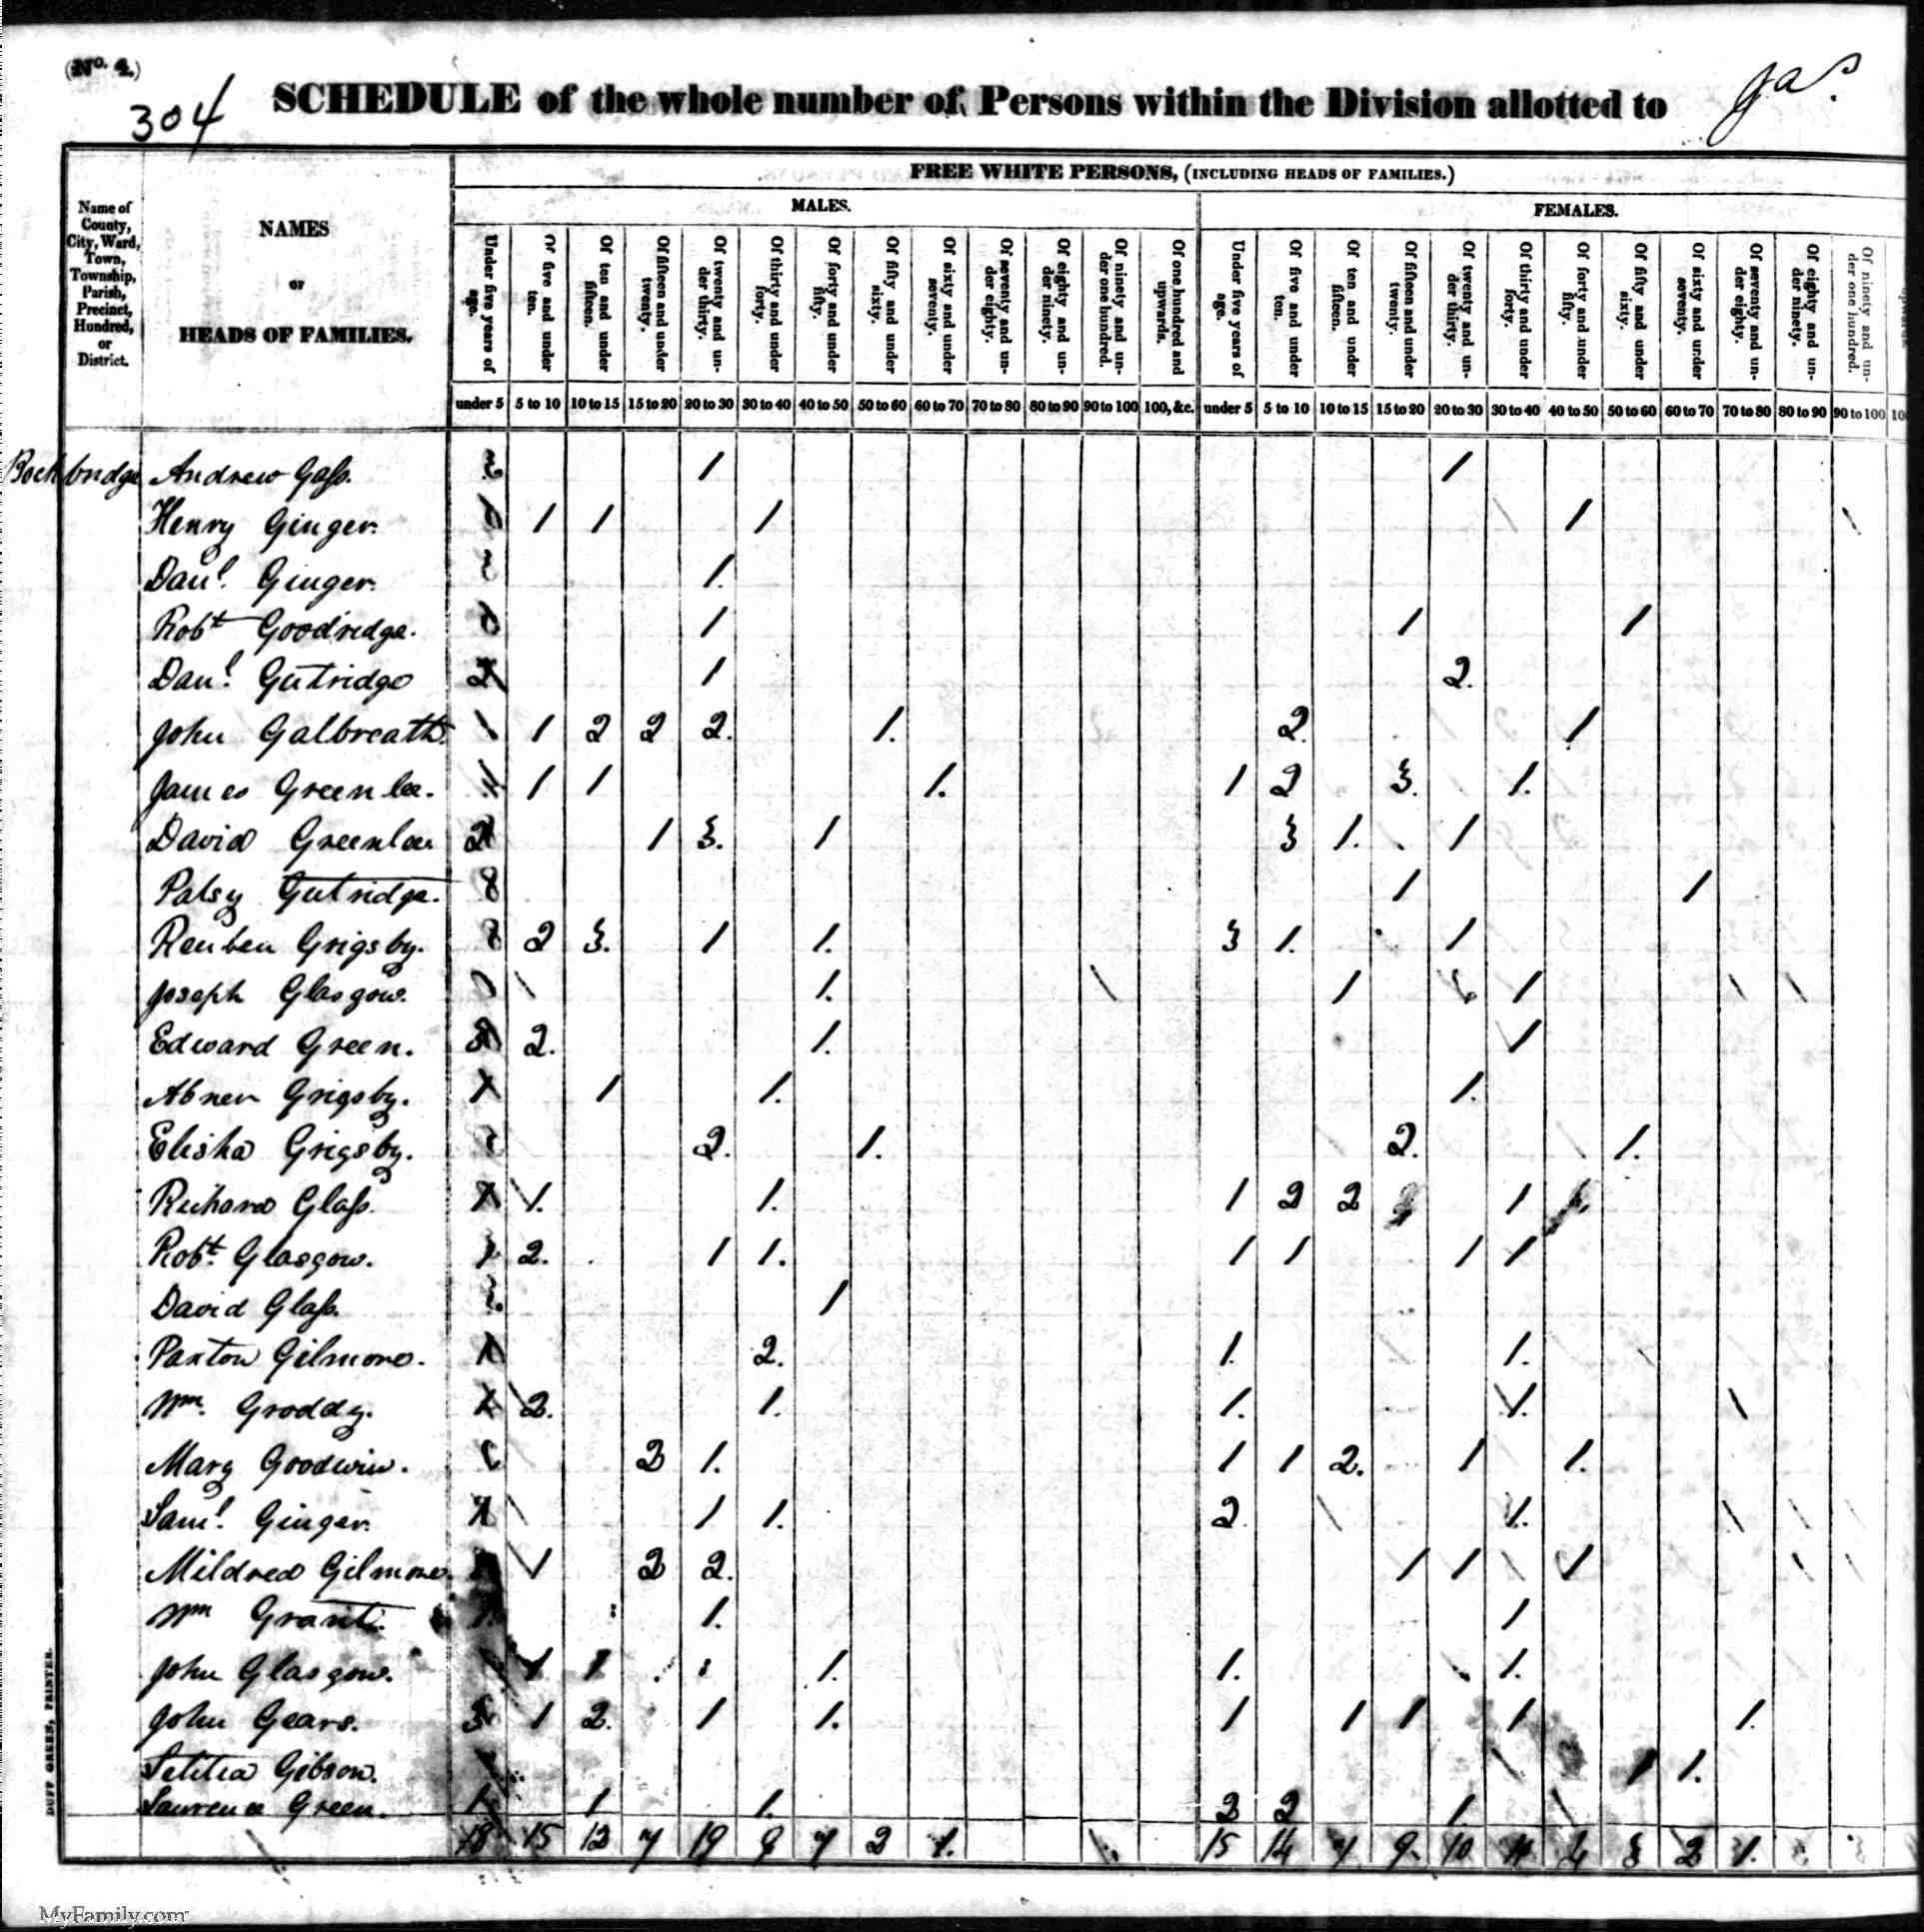 (No. 4.)
304
SCHEDULE of the whole number of Persons within the Division allotted to Jas.
FREE WHITE PERSONS, (INCLUDING HEADS OF FAMILIES.)
MALES. FEMALES.
Name of County, City, Ward, Town, Township, Parish, Precinct, Hundred, or District.
NAMES
OF
HEADS OF FAMILIES.
Under five years of age.
Of five and under ten.
Of ten and under fifteen.
Of fifteen and under twenty.
Of twenty and under thirty.
Of thirty and under forty.
Of forty and under fifty.
Of fifty and under sixty.
Of sixty and under seventy.
Of seventy and under eighty.
Of eighty and under ninety.
Of ninety and under one hundred.
Of one hundred and upwards.
Under five years of age.
Of five and under ten.
Of ten and under fifteen.
Of fifteen and under twenty.
Of twenty and under thirty.
Of thirty and under forty.
Of forty and under fifty.
Of fifty and under sixty.
Of sixty and under seventy.
Of seventy and under eighty.
Of eighty and under ninety.
Of ninety and under one hundred.
under 5 5 to 10 10 to 15 15 to 20 20 to 30 30 to 40 40 to 50 50 to 60 60 to 70 70 to 80 80 to 90 90 to 100 100, &c. under 5 5 to 10 10 to 15 15 to 20 20 to 30 30 to 40 40 to 50 50 to 60 60 to 70 70 to 80 80 to 90 90 to 100 10
Rockbridge Andrew Gass. 1 1
Henry Ginger. 1 1 1 1
Danl. Ginger. 1.
Robt Goodridge. 1 1 1
Danl. Gutridge 1 2.
John Galbreath. 1 1 2 2 2. 1. 2. 1
James Greenlee. 1 1 1. 1 2 3. 1.
David Greenlee 2 1 3. 1 3 1. 1
Patsy Gutridge. 1 1
Reuben Grigsby. 2 3. 1 1. 3 1. 1
Joseph Glasgow. 1. 1 1
Edward Green. 2. 1. 1
Abner Grigsby. 1 1. 1.
Elisha Grigsby. 2. 1. 2. 1.
Richard Glass. 1. 1. 1 2 2 1
Robt. Glasgow. 2. 1 1. 1 1 1 1
David Glass. 1
Paxton Gilmore. 2. 1. 1.
Wm. Groddy. 2. 1. 1. 1.
Mary Goodwin. 2 1. 1 1 2. 1 1.
Saml. Ginger. 1 1. 2. 1.
Mildred Gilmore. 1 2 2. 1 1 1
Wm Grant. 1. 1
John Glasgow. 1 1 1. 1. 1.
John Gears. 1 2. 1 1. 1 1 1 1 1.
Letitia Gibson. 1 1.
Laurence Green. 1. 1 1. 2 2 1.
18 15 12 7 19 7 2 1. 15 14 9 10 2 1.
DUFF GREEN, PRINTER.
MyFamily.com